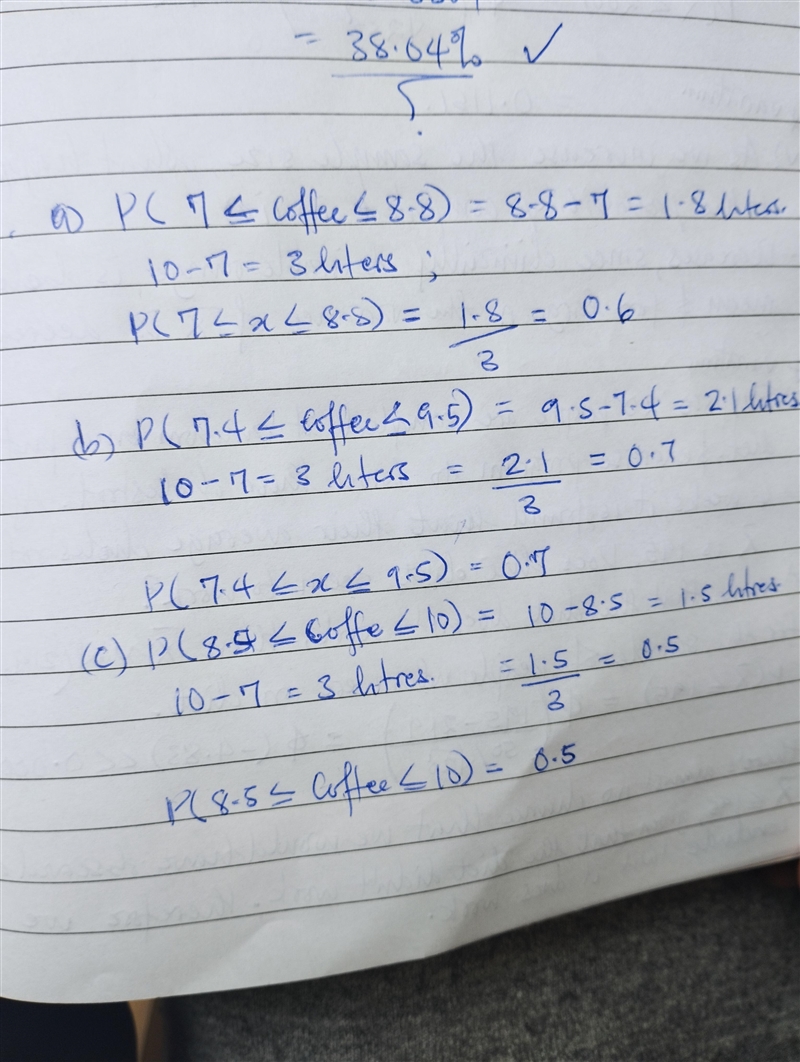 = 38.04% ✓
a) P( 7 ≤ Coffee ≤ 8.8) = 8.8 - 7 = 1.8 liters.
10 - 7 = 3 liters ;
P( 7 ≤ x ≤ 8.8) = 1.8/3 = 0.6
(b) P( 7.4 ≤ Coffee ≤ 9.5) = 9.5 - 7.4 = 2.1 litres
10 - 7 = 3 liters = 2.1/3 = 0.7
P( 7.4 ≤ x ≤ 9.5) = 0.7
(c) P( 8.5 ≤ Coffe ≤ 10) = 10 - 8.5 = 1.5 litres.
10 - 7 = 3 litres. = 1.5/3 = 0.5
P( 8.5 ≤ Coffee ≤ 10) = 0.5